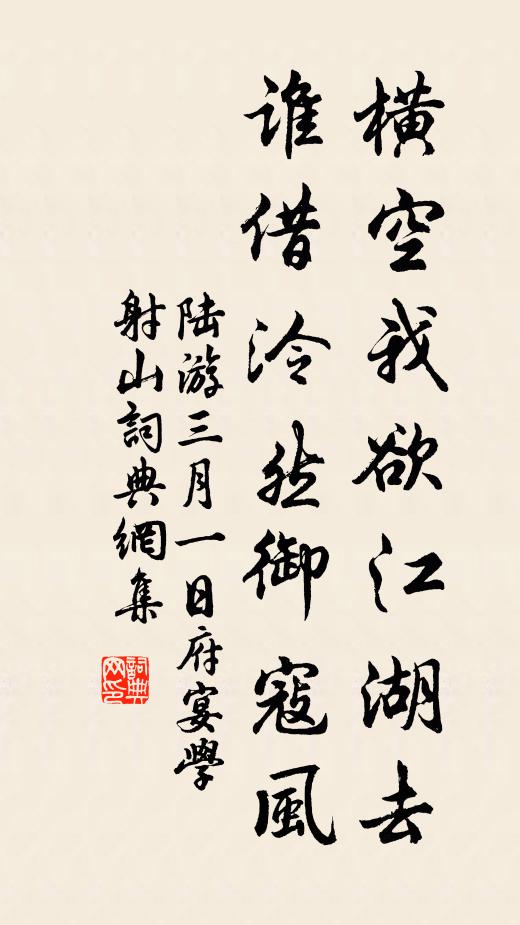 橫空我欲江湖去
誰借泠然御寇風
陆游三月一日府宴學
射山詞典網集
詞典网印